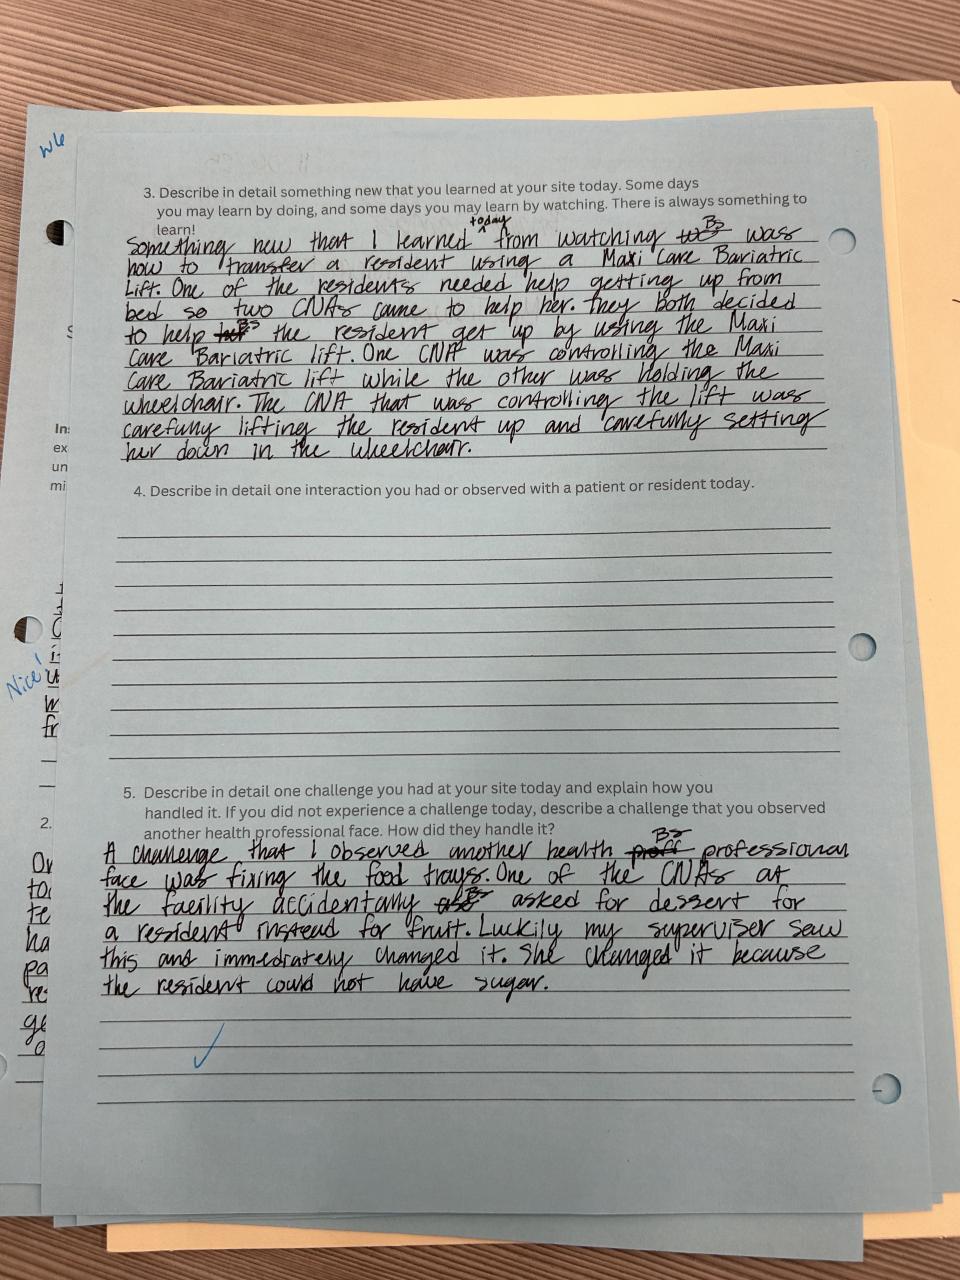 w6
3. Describe in detail something new that you learned at your site today. Some days
you may learn by doing, and some days you may learn by watching. There is always something to
learn!
today
Something new that I learned ^ from watching BS was
how to transfer a resident using a Maxi Care Bariatric
Lift. One of the residents needed help getting up from
bed so two CNAs came to help her. They both decided
to help BS the resident get up by using the Maxi
Care Bariatric lift. One CNA was controlling the Maxi
Care Bariatric lift while the other was holding the
wheelchair. The CNA that was controlling the lift was
carefully lifting the resident up and carefully setting
her down in the wheelchair.
4. Describe in detail one interaction you had or observed with a patient or resident today.
5. Describe in detail one challenge you had at your site today and explain how you
handled it. If you did not experience a challenge today, describe a challenge that you observed
another health professional face. How did they handle it?
A challenge that I observed another health proff BS professional
face was fixing the food trays. One of the CNAs at
the facility accidentally BS asked for dessert for
a resident instead for fruit. Luckily my superviser saw
this and immediately changed it. She changed it because
the resident could not have sugar.
In
ex
un
mi
Nice!
fr
2.
Or
to
te
ha
pa
re
ge
a